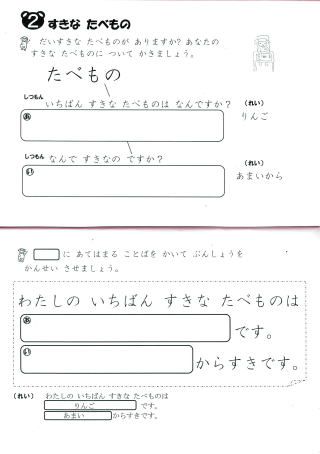 2 すきな たべもの
だいすきな たべものが ありますか? あなたの
すきな たべものに ついて かきましょう。
たべもの
しつもん いちばん すきな たべものは なんですか?
(れい)
りんご
あ
しつもん なんで すきなの ですか?
(れい)
あまいから
い
に あてはまる ことばを かいて ぶんしょうを
かんせい させましょう。
わたしの いちばん すきな たべものは
あ です。
い からすきです。
(れい) わたしの いちばん すきな たべものは
りんご です。
あまい からすきです。